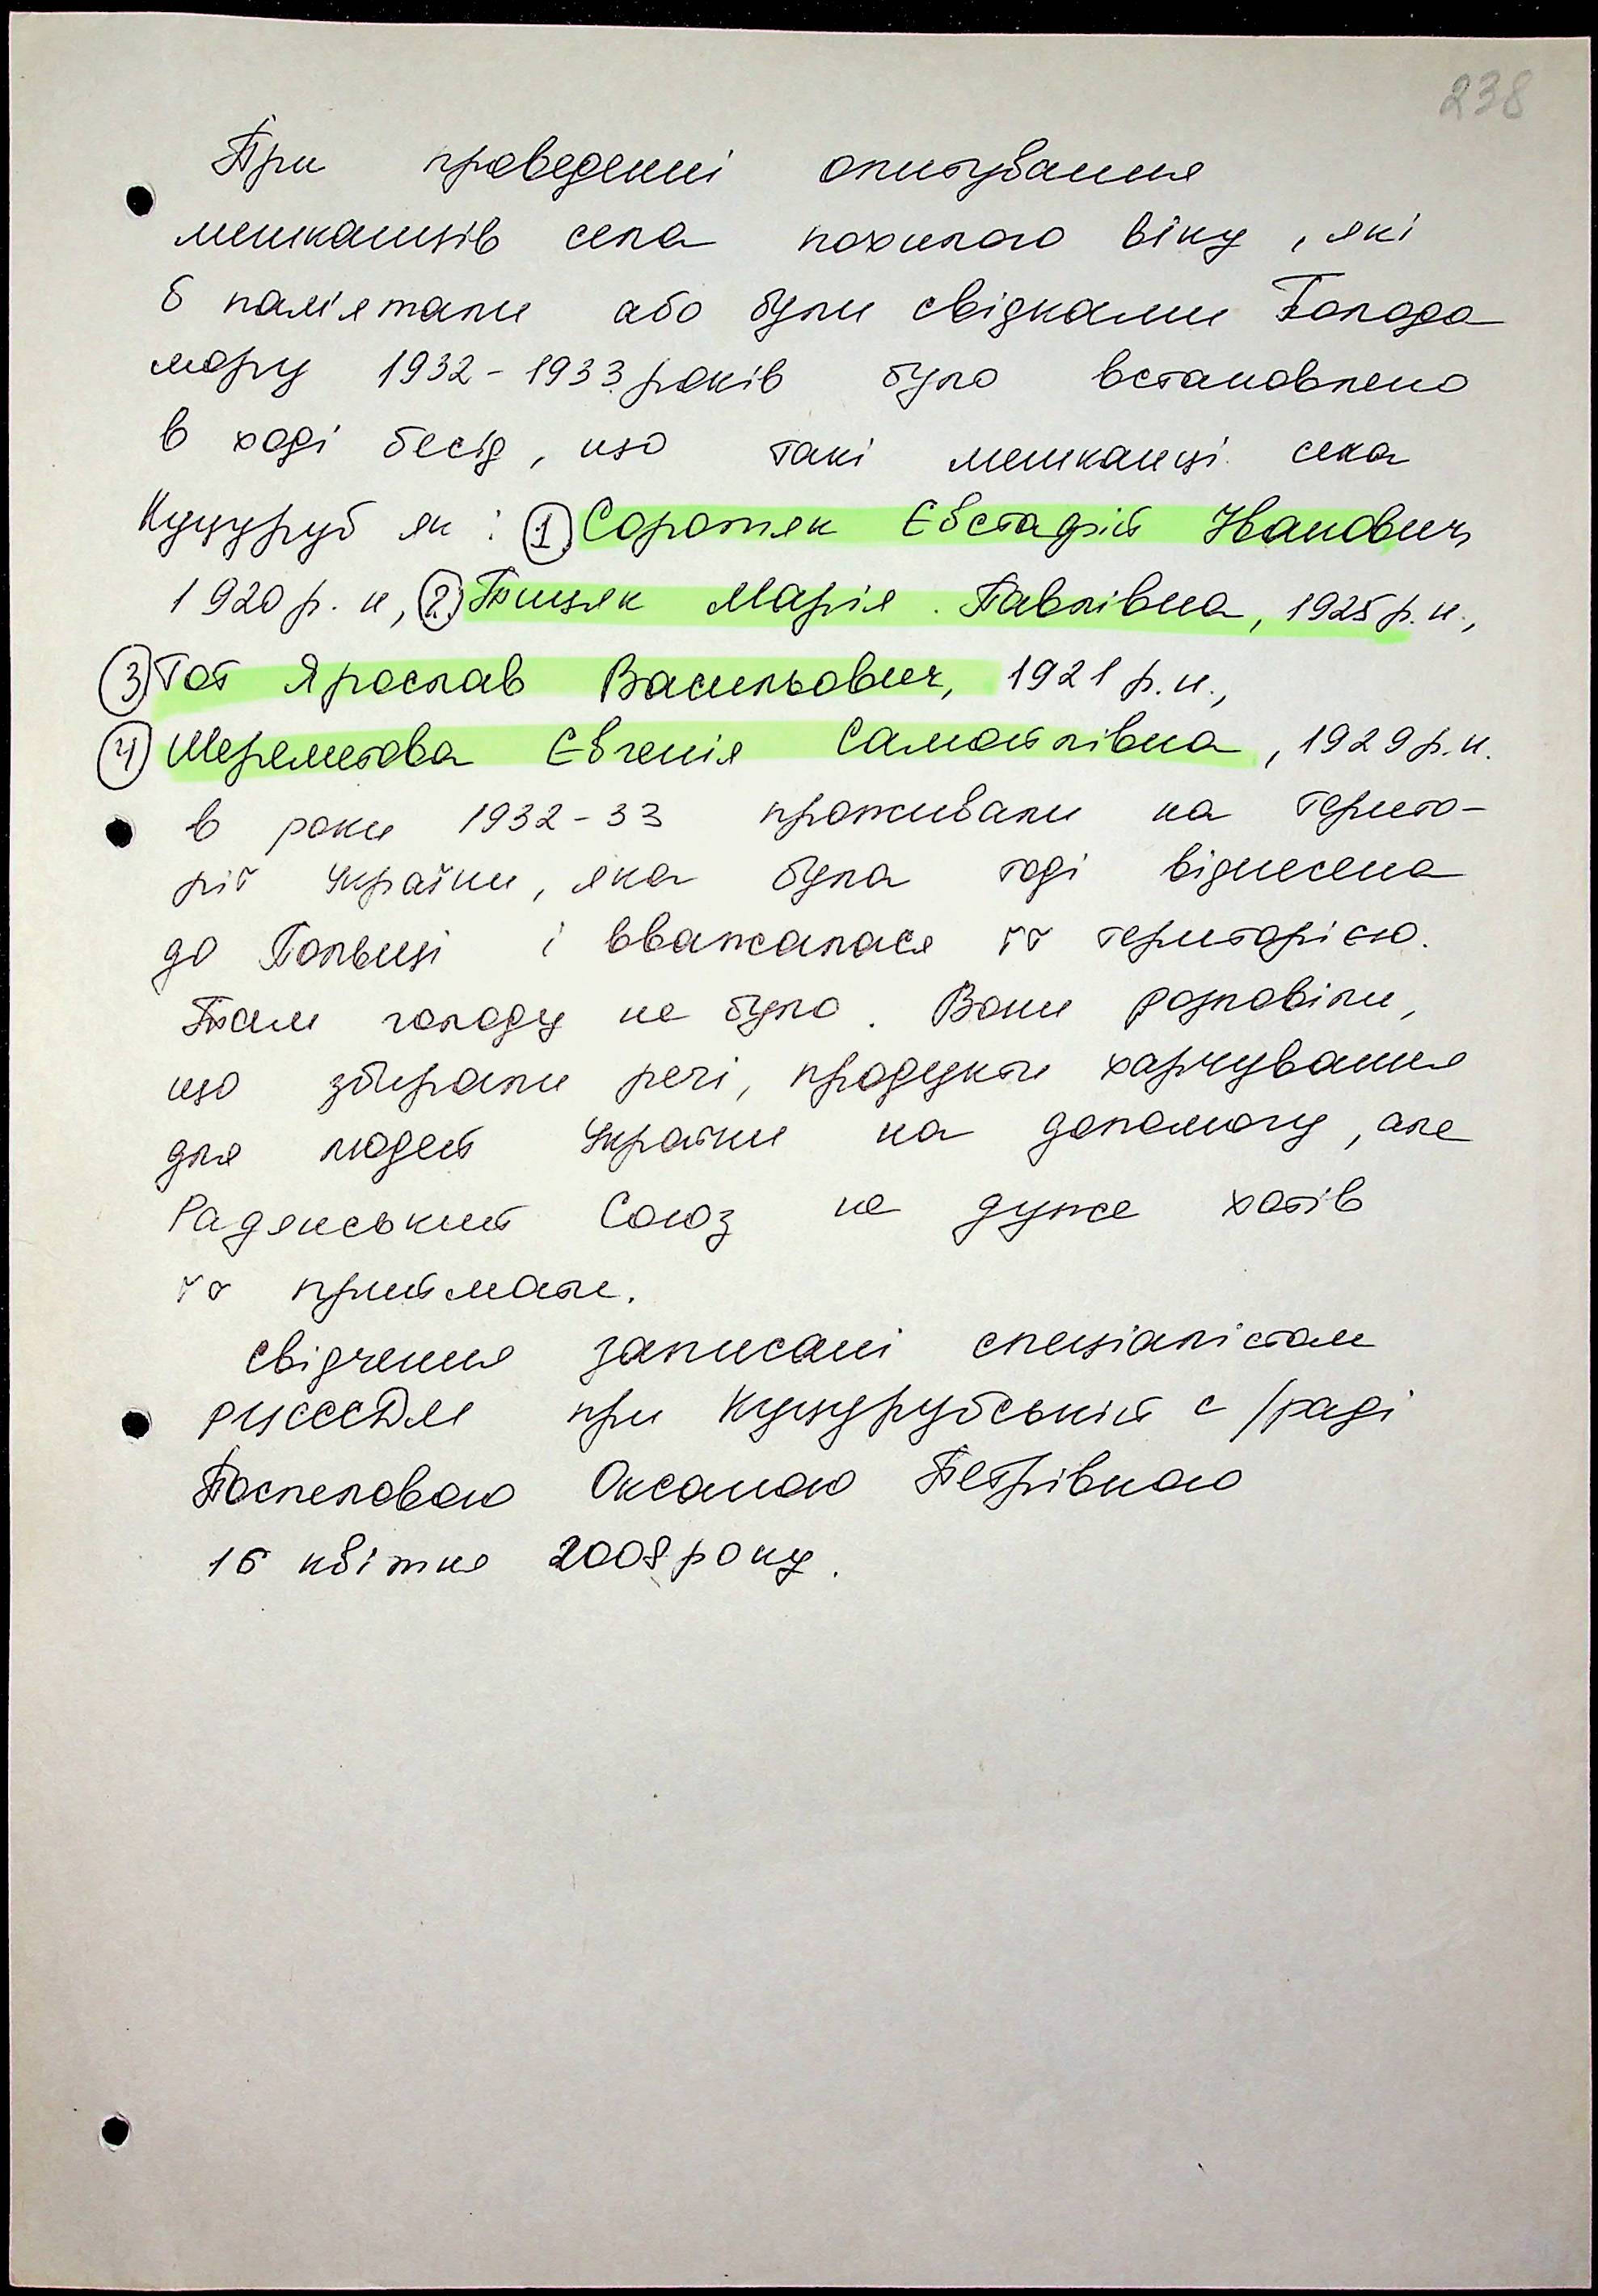 238
При проведенні опитування
мешканців села похилого віку, які
б пам'ятали або були свідками Голодо
мору 1932-1933 років було встановлено
в ході бесід, що такі мешканці села
Куцуруб як: 1. Соротяк Євстафій Іванович
1920 р.н, 2. Грицяк Марія Павлівна, 1925 р.н.,
3 Гой Ярослав Васильович, 1921 р.н.,
4 Шереметова Євгенія Самойлівна, 1929 р.н.
в роки 1932-33 проживали на терито-
рії України, яка була тоді віднесена
до Польщі і вважалася її територією.
Там голоду не було. Вони розповіли,
що збирали речі, продукти харчування
для людей України на допомогу, але
Радянський Союз не дуже хотів
її приймати.
Свідчення записані спеціалістом
РЦСССДМ при Куцурубській с/раді
Поспеловою Оксаною Петрівною
16 квітня 2008 року.